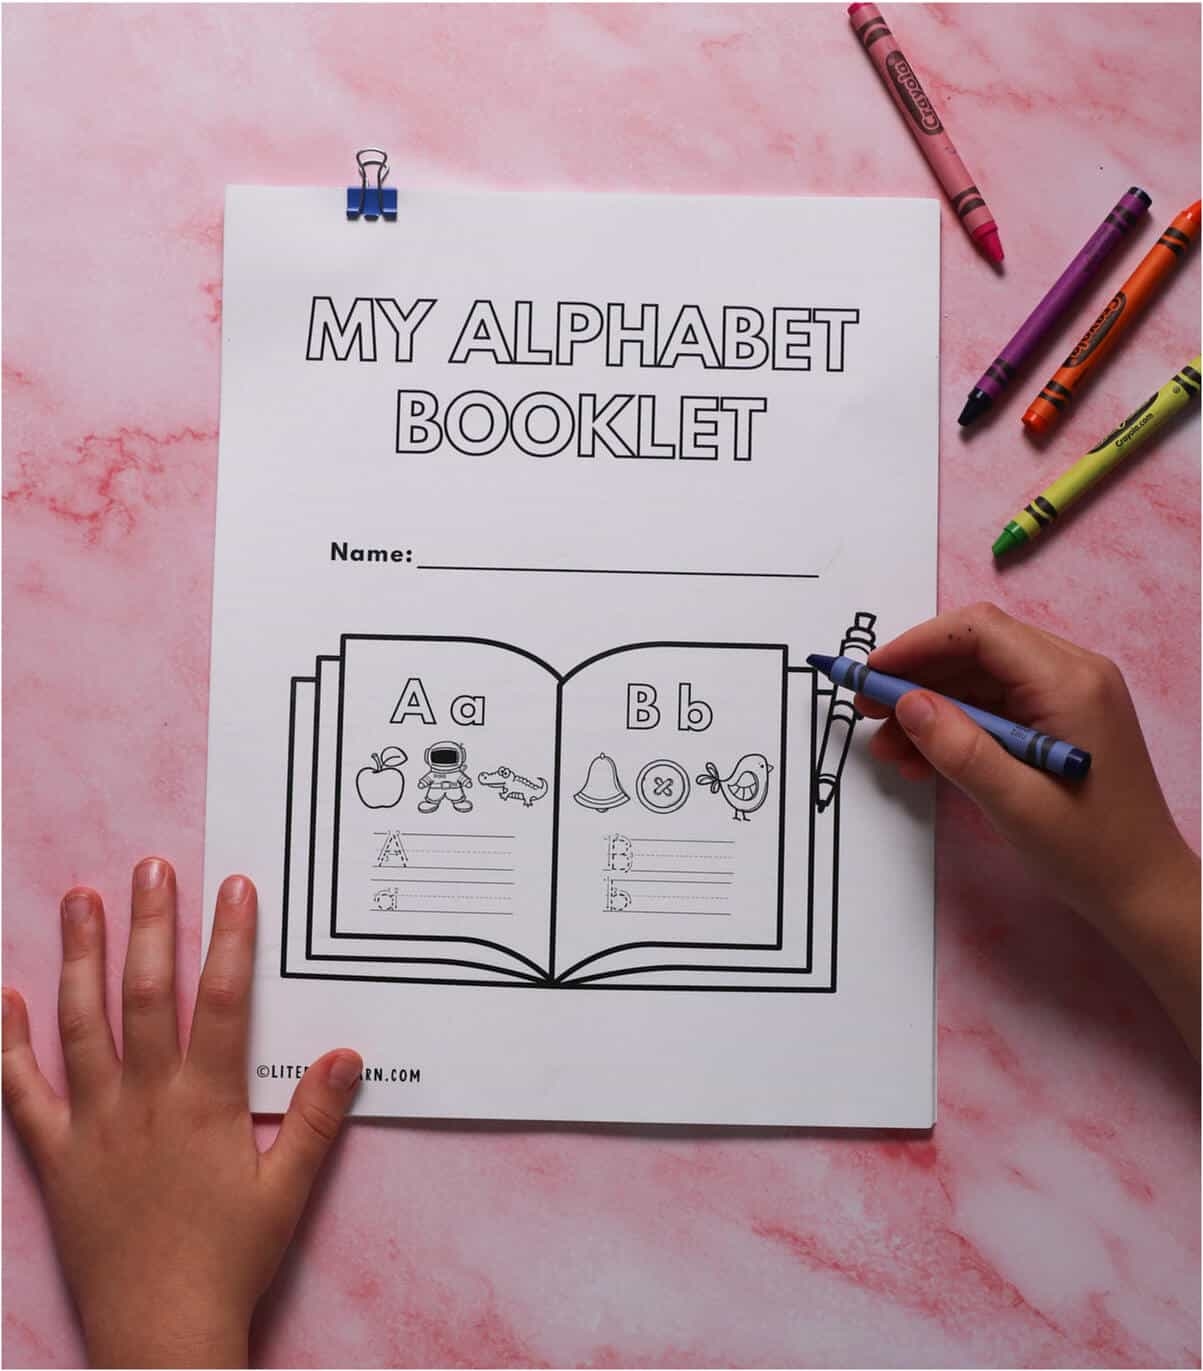 MY ALPHABET
BOOKLET
Name:
A a
B b
A
a
B
b
Crayola
Crayola
Crayola.com